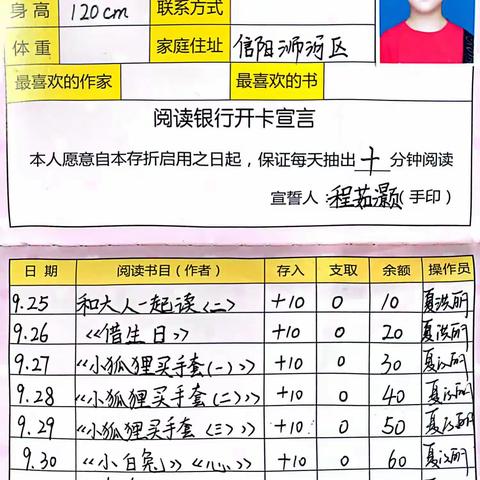 身高 120cm 联系方式
体重 家庭住址 信阳浉河区
最喜欢的作家 最喜欢的书
阅读银行开卡宣言
本人愿意自本存折启用之日起，保证每天抽出十分钟阅读
宣誓人：程茹灏(手印)
日期 阅读书目(作者) 存入 支取 余额 操作员
9.25 和大人一起读<二> +10 0 10 夏洪丽
9.26 《借生日》 +10 0 20 夏洪丽
9.27 《小狐狸买手套(一)》 +10 0 30 夏洪丽
9.28 《小狐狸买手套(二)》 +10 0 40 夏洪丽
9.29 《小狐狸买手套〈三〉》 +10 0 50 夏洪丽
9.30 《小白兔》《心》 +10 0 60 夏洪丽